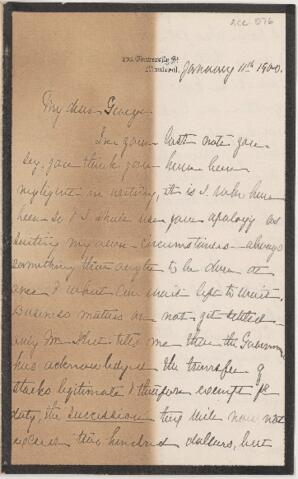 acc 576
University St
Montreal.
January 11th 1900.
My dear George.
In your last note you
say, you think you have been
negligent in writing, it is I who have
been so & I shall use your apology as
suiting my own circumstances always
something that ought to be done at
once & what can wait left to wait.
Business matters are not yet settled
only Mr tells me that the Governm
has acknowledged the transfer of
stocks legitimate & therefore exempt fr
duty, the succession will now not
exceed two hundred dollars, but